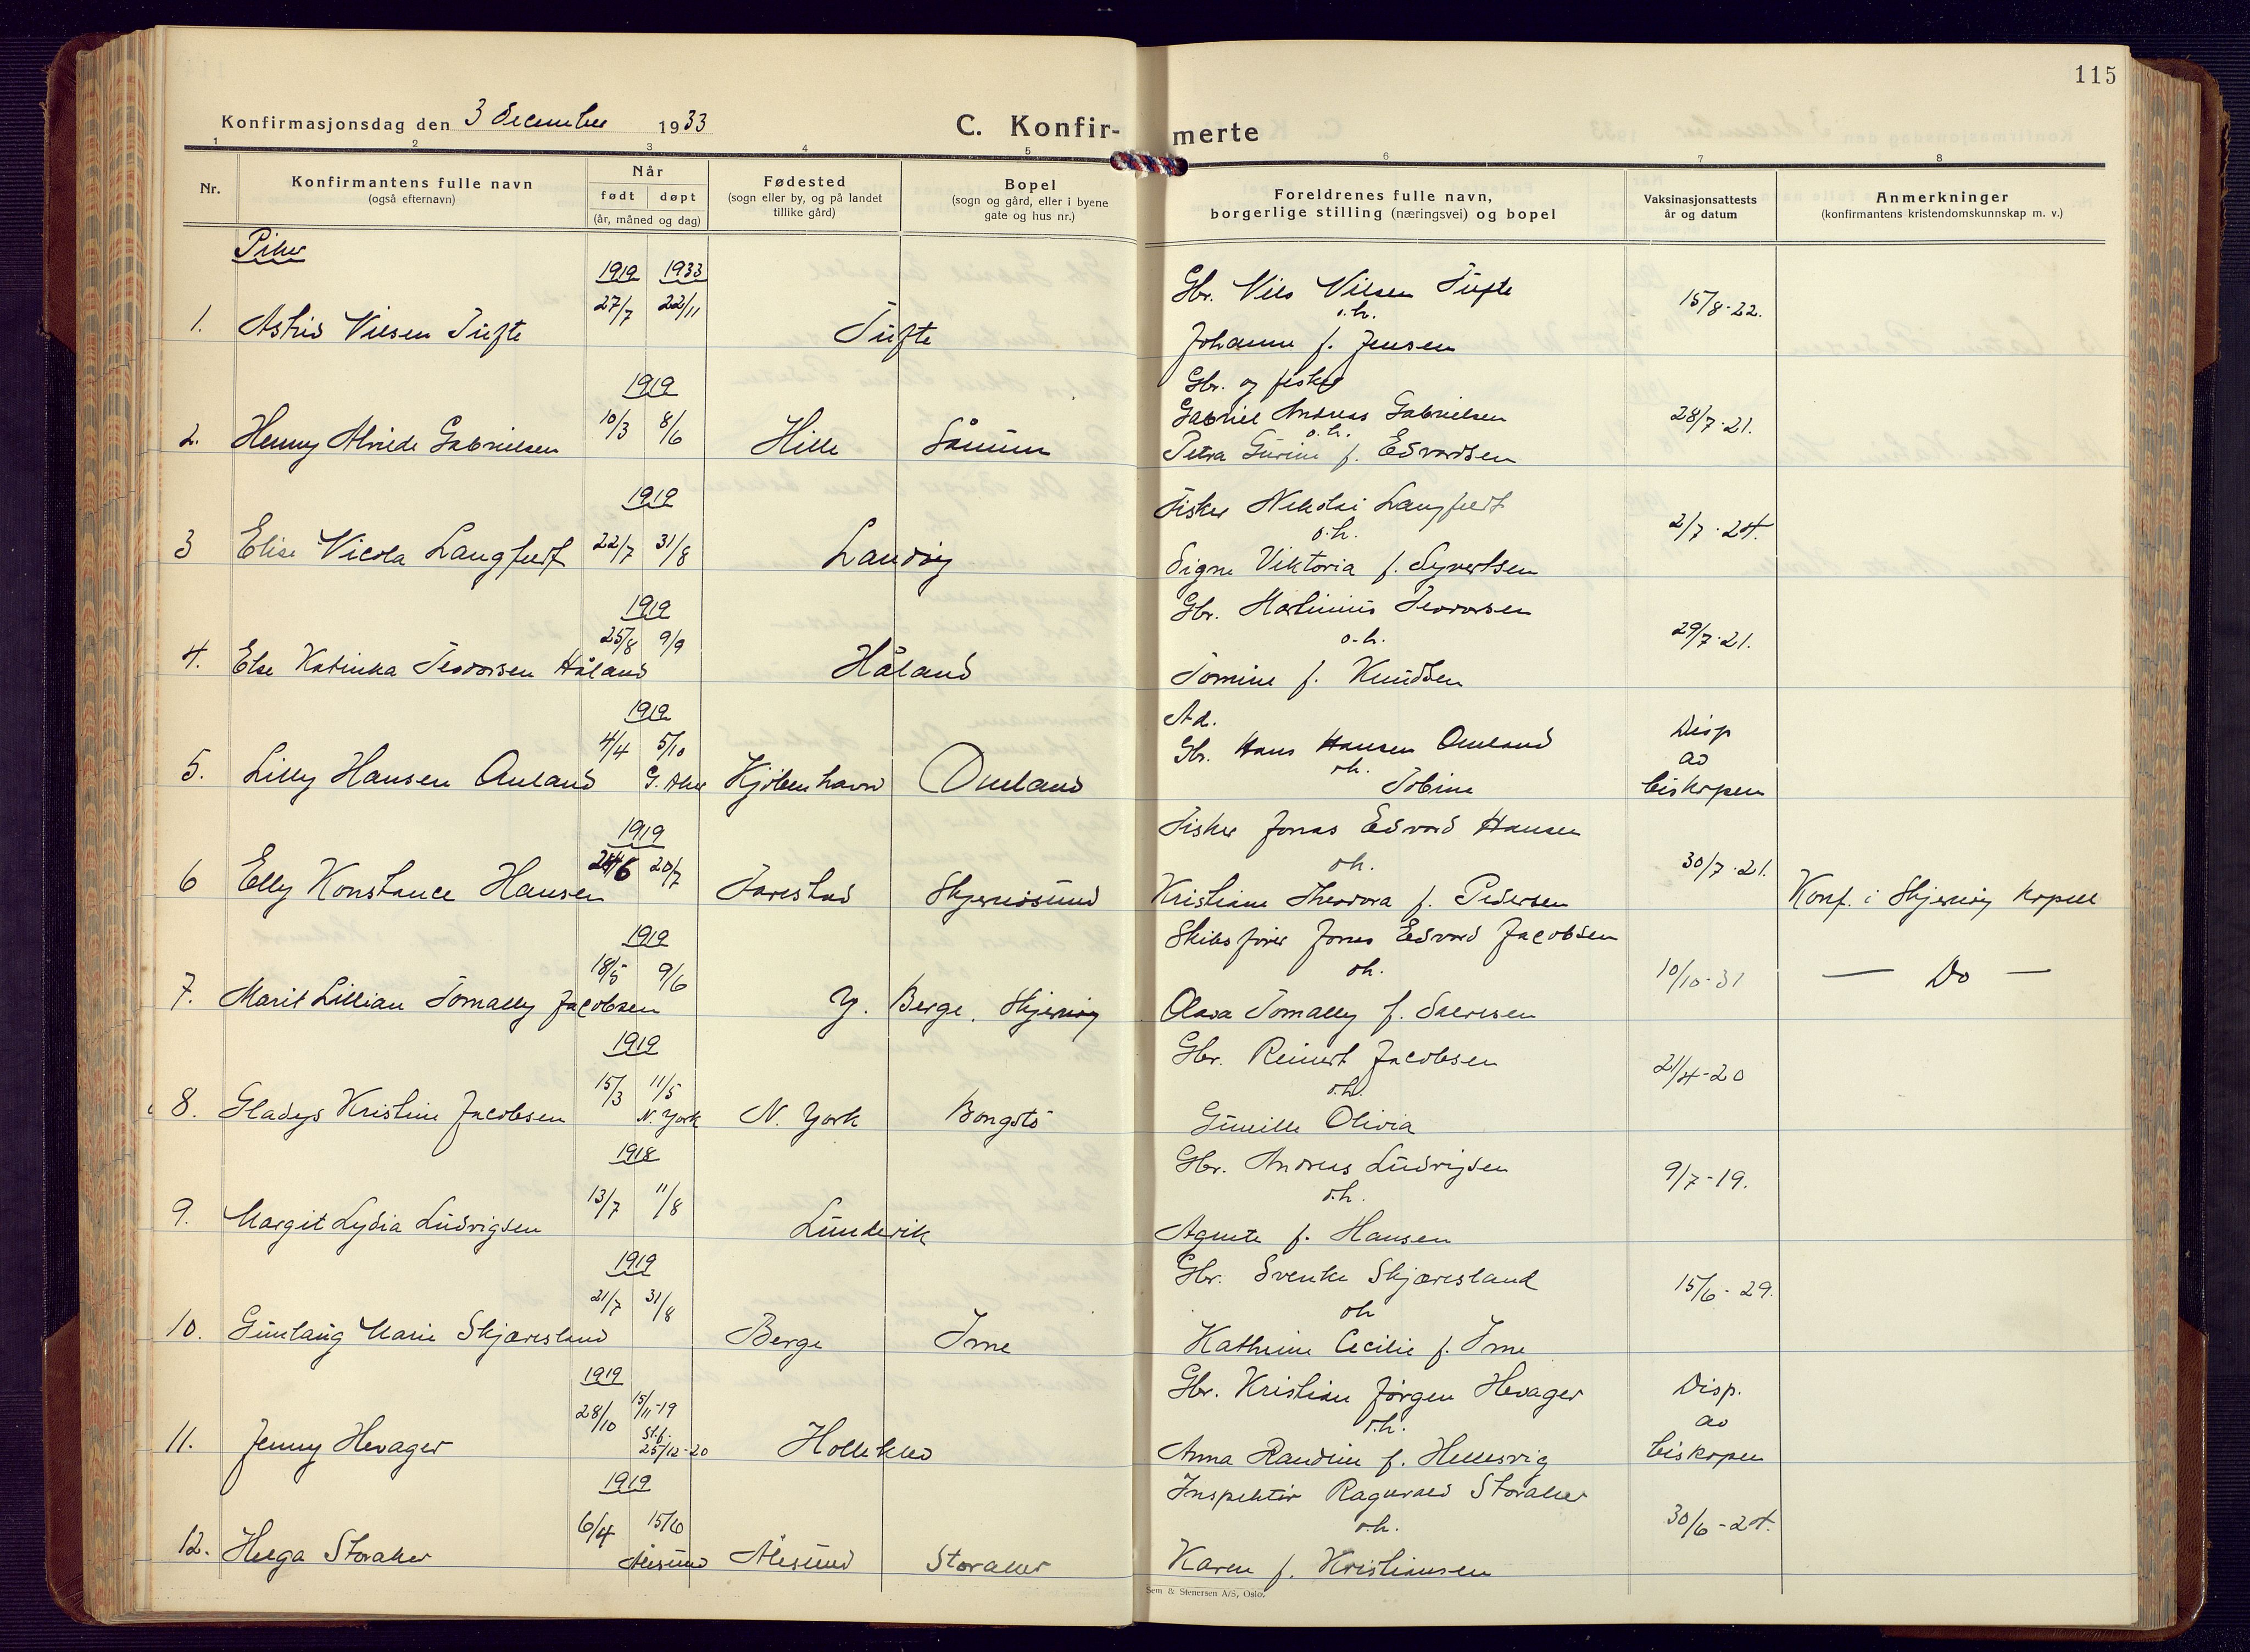 115
Konfirmasjonsdag den 3 December 1933
C. Konfir- merte
1 2 3 4 5 6 7 8
Nr.
Konfirmantens fulle navn
(også efternavn)
Når
født døpt
(år, måned og dag)
Fødested
(sogn eller by, og på landet
tillike gård)
Bopel
(sogn og gård, eller i byene
gate og hus nr.)
Foreldrenes fulle navn,
borgerlige stilling (næringsvei) og bopel
Vaksinasjonsattests
år og datum
Anmerkninger
(konfirmantens kristendomskunnskap m. v.)
Piker
1919 1933
27/7 22/11
1. Astrid Nilsen Tufte
Tufte
Gbr. Nils Nilsen Tufte
o.h.
Johanne f. Jensen
15/8-22.
1919
10/3 8/6
2. Henny Alvide Gabrielsen
Hille Sånum
Gbr. og fisker
Gabriel Andreas Gabrielsen
o.h.
Petra Gurine f. Edvardsen
28/7-21.
1919
22/7 31/8
3 Elise Nicola Langfeldt
Landøy
Fisker Nikolai Langfeldt
o.h.
Signe Viktoria f. Syvertsen
2/7-24.
1919
25/8 9/9
4. Else Katinka Teodorsen Håland
Håland
Gbr. Martinius Teodorsen
o.h.
Tomine f. Knudsen
29/7-21.
1919
4/4 5/10
5. Lilly Hansen Omland
Kjøbenhavn Omland
Ad.
Gbr. Hans Hansen Omland
oh.
Tobine
Disp
av
biskopen
1919
20/7
6 Elly Konstance Hansen
Tarestad Skjernøsund
Fisker Jonas Edvard Hansen
oh.
Kristiane Theodora f. Pedersen
30/7-21.
Konf. i Skjernøy kapell
1919
18/5 9/6
7. Marit Lillian Tomally Jacobsen
Y. Berge, Skjernøy
Skibsfører Jonas Edvard Jacobsen
oh.
Olava Tomally f. Salvesen
10/10-31
— Do —
1919
15/3 11/5
N. York
8. Gladys Kristine Jacobsen
N. York Bongstø
Gbr. Reinert Jacobsen
o.h.
Gunille Olivia
21/4-20
1918
13/7 11/8
9. Margit Lydia Ludvigsen
Lundevik
Gbr. Andreas Ludvigsen
o.h.
Agnete f. Hansen
9/7-19.
1919
21/7 31/8
10. Gunlaug Marie Skjæresland
Berge Ime
Gbr. Svenke Skjæresland
oh
Kathrine Cecilie f. Ime
15/6-29.
1919
28/10 15/11-19
St.f.
25/12-20
11. Jenny Hevager
Holleklev
Gbr. Kristian Jørgen Hevager
o.h.
Anna Randine f. Hellesvig
Disp.
av
biskopen
1919
6/4 15/6
Ålesund
12. Helga Storaker
Ålesund Storaker
Inspektør Ragnvald Storaker
o.h.
Karen f. Kristiansen
30/6-24.
Sem & Stenersen A/S, Oslo.